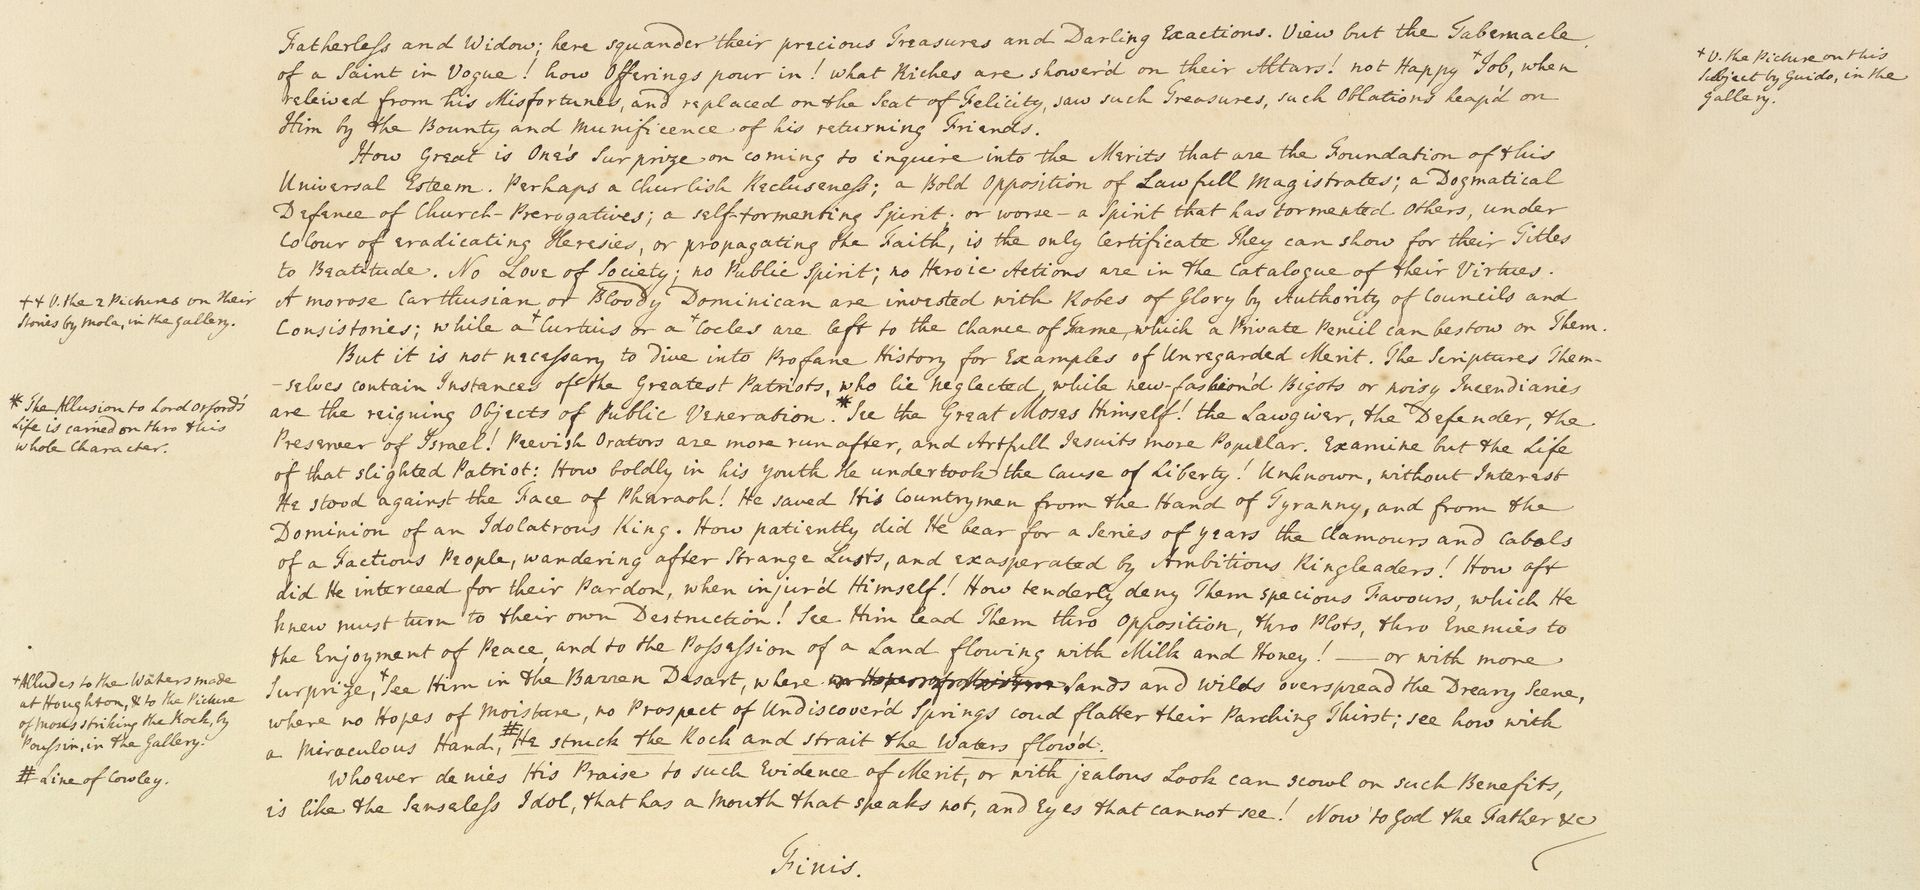 Fatherless and Widow; here squander their precious Treasures and Darling Exactions. View but the Tabernacle
of a Saint in Vogue! how Offerings pour in! what Riches are shower'd on their Altars! not Happy +Job, when
releived from his Misfortunes, and replaced on the Seat of Felicity, saw such Treasures, such Oblations heap'd on
Him by the Bounty and Munificence of his returning Friends.
How Great is One's Surprize on coming to inquire into the Merits that are the Foundation of this
Universal Esteem. Perhaps a Churlish Recluseness; a Bold Opposition of Lawfull Magistrates; a Dogmatical
Defence of Church-Prerogatives; a self-tormenting Spirit; or worse - a Spirit that has tormented others, under
Colour of eradicating Heresies, or propagating the Faith, is the only Certificate They can show for their Titles
to Beatitude. No Love of Society; no Public Spirit; no Heroic Actions are in the Catalogue of their Virtues.
A morose Carthusian or Bloody Dominican are invested with Robes of Glory by Authority of Councils and
Consistories; while a +Curtius or a +Cocles are left to the Chance of Fame, which a Private Pencil can bestow on Them.
But it is not necessary to dive into Profane History for Examples of Unregarded Merit. The Scriptures Them-
-selves contain Instances of the Greatest Patriots, who lie neglected, while new-fashion'd Bigots or noisy Incendiaries
are the reigning Objects of Public Veneration. *See the Great Moses Himself! the Lawgiver, the Defender, the
Preserver of Israel! Peevish Orators are more run after, and Artfull Jesuits more Popular. Examine but the Life
of that slighted Patriot: How boldly in his youth He undertook the Cause of Liberty! Unknown, without Interest
He stood against the Face of Pharaoh! He saved His Countrymen from the Hand of Tyranny, and from the
Dominion of an Idolatrous King. How patiently did He bear for a Series of years the Clamours and Cabals
of a Factious People, wandering after Strange Lusts, and exasperated by Ambitious Ringleaders! How oft
did He interceed for their Pardon, when injur'd Himself! How tenderly deny Them specious Favours, which He
knew must turn to their own Destruction! See Him lead Them thro Opposition, thro Plots, thro Enemies to
the Enjoyment of Peace, and to the Possession of a Land flowing with Milk and Honey! — or with more
Surprize, +See Him in the Barren Desart, where Sands and Wilds overspread the Dreary Scene,
where no Hopes of Moisture, no Prospect of Undiscover'd Springs coud flatter their Parching Thirst; see how with
a Miraculous Hand, #He struck the Rock and strait the Waters flow'd.
Whoever denies His Praise to such Evidence of Merit, or with jealous Look can scowl on such Benefits,
is like the Senseless Idol, that has a Mouth that speaks not, and Eyes that cannot see! Now to God the Father &c
Finis.
+ V. the Picture on this
Subject by Guido, in the
Gallery.
++ V. the 2 Pictures on their
Stories by Mola, in the Gallery.
* The Allusion to Lord Orford's
Life is carried on thro this
whole Character.
+ Alludes to the Waters made
at Houghton, & to the Picture
of Moses striking the Rock, by
Poussin, in the Gallery.
# Line of Cowley.